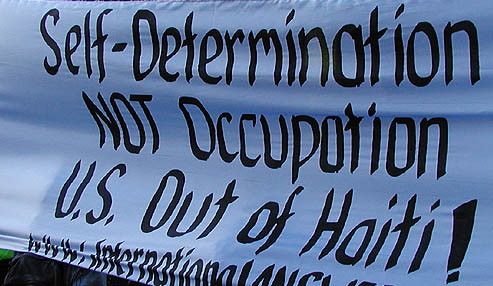 Self-Determination
NOT Occupation
U.S. Out of Haiti!
www.International